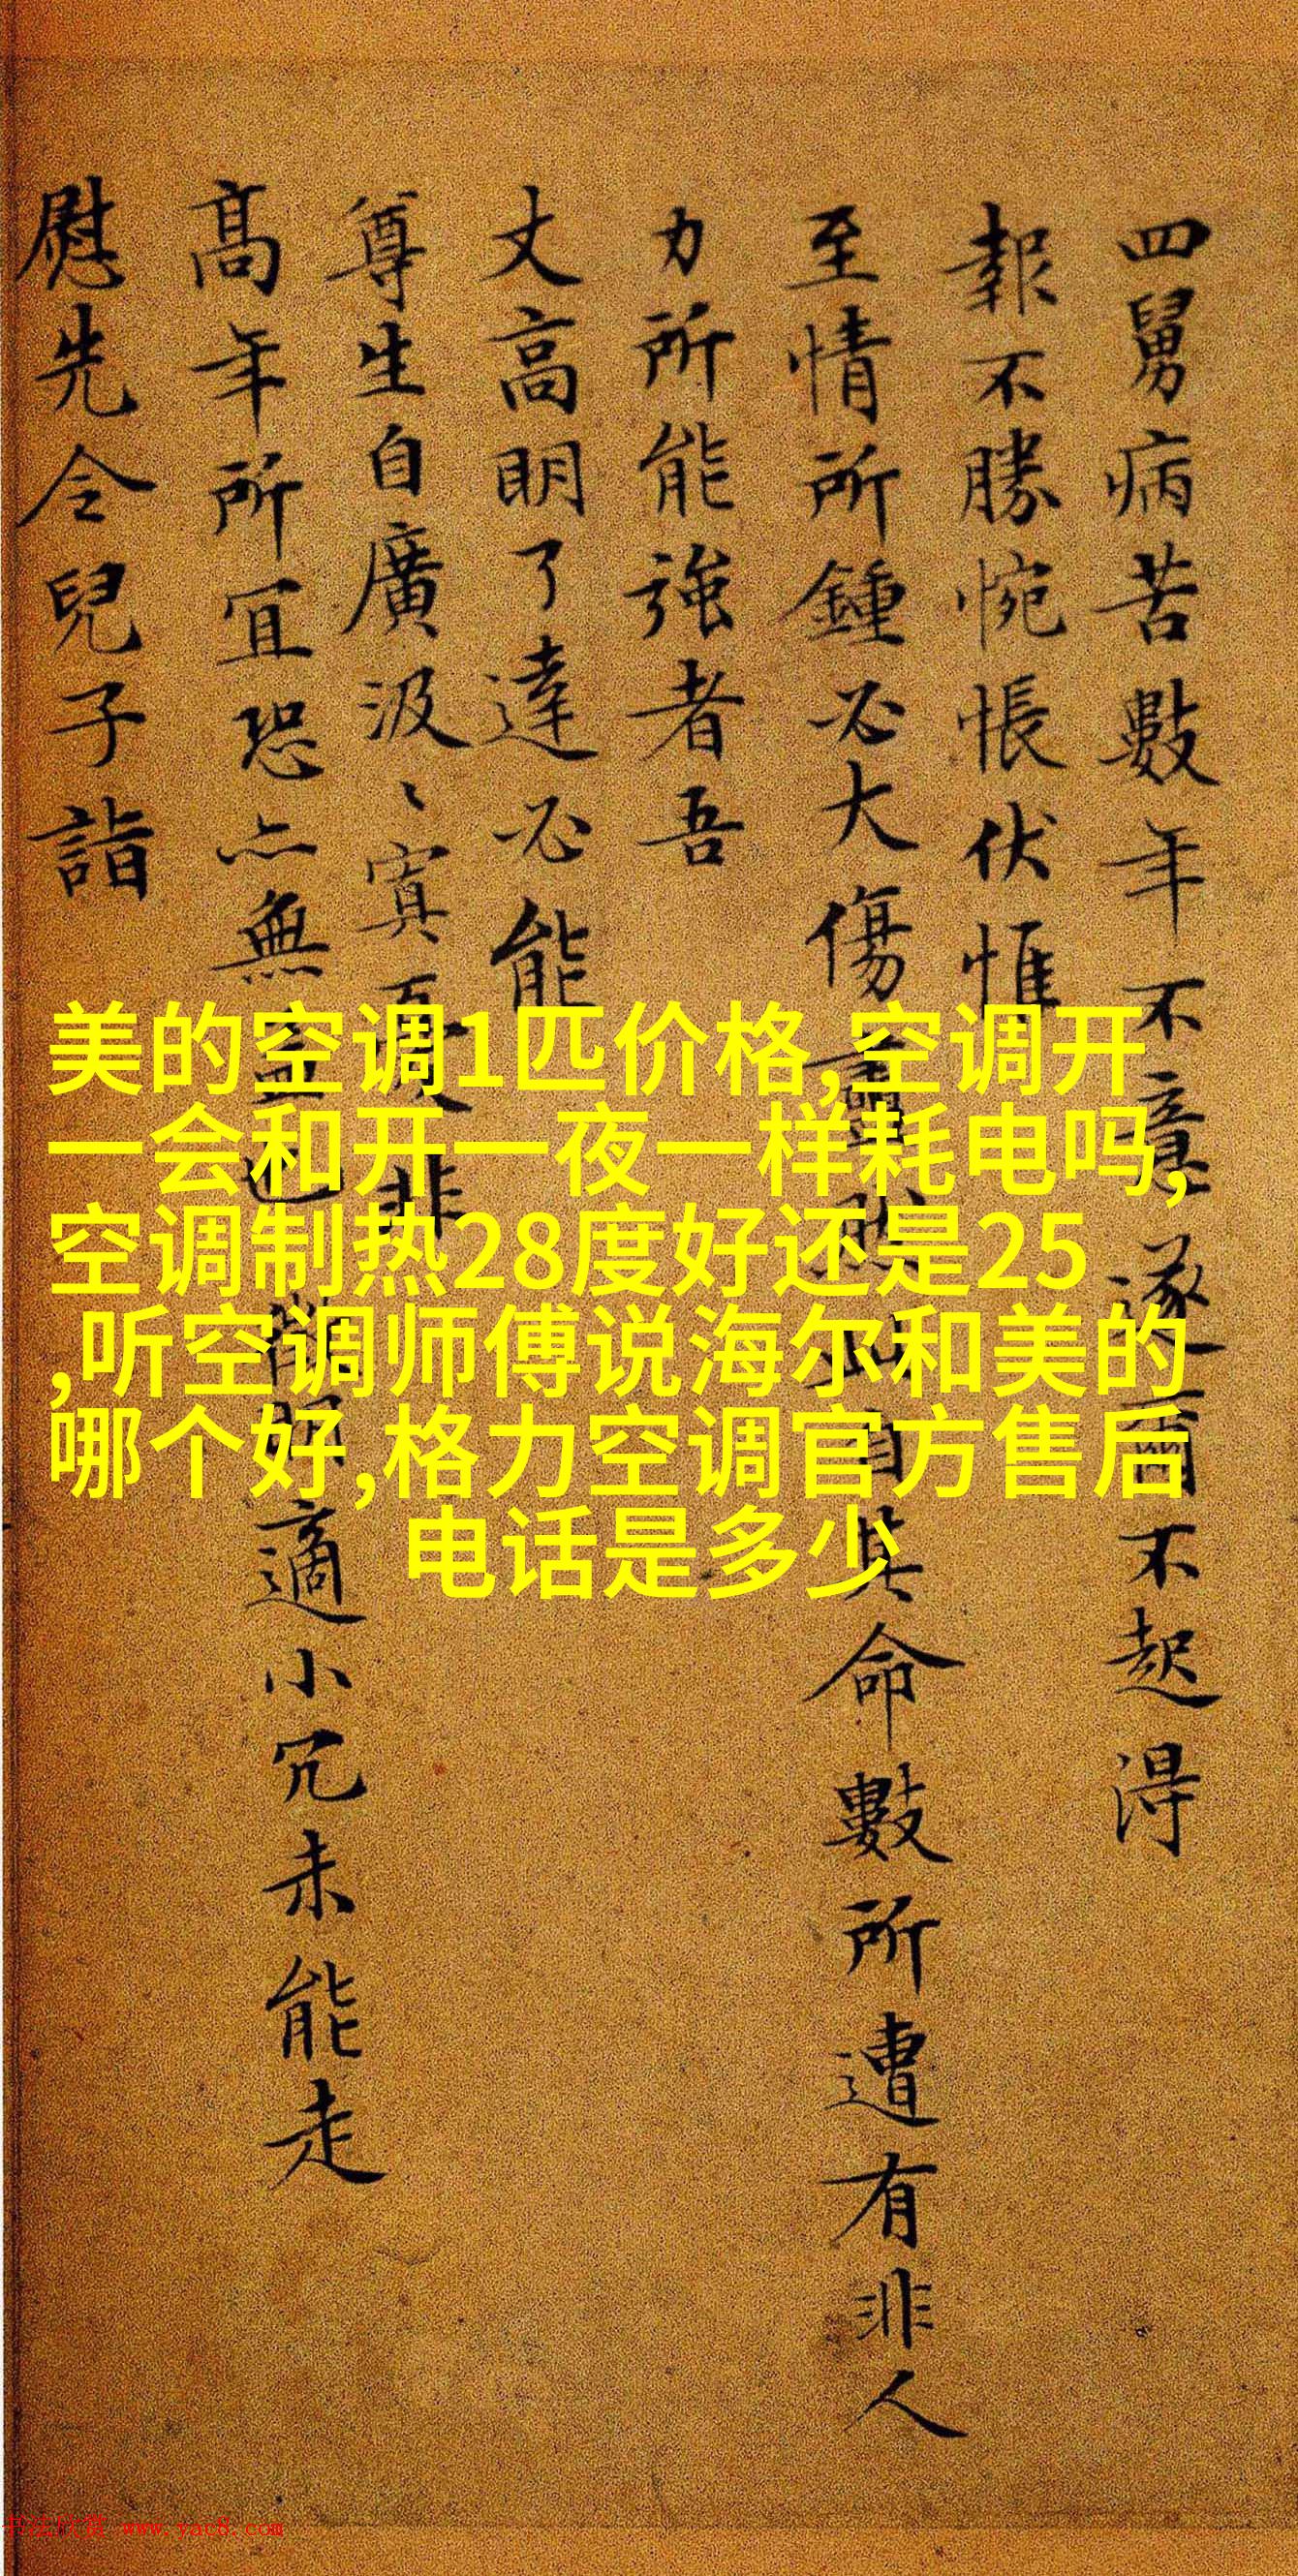 四舅病苦數年不意遂爾不起得
報不勝惋悵伏惟
至情所鍾必大傷
自其命數所遭有非人
力所能強者吾
丈高明了達必能
尊生自廣汲〻寘
高年所宜恐亦無
適小冗未能走
慰先令兒子詣
美的空调1匹价格,空调开
一会和开一夜一样耗电吗,
空调制热28度好还是25
,听空调师傅说海尔和美的
哪个好,格力空调官方售后
电话是多少
书法欣赏 www.yac8.com